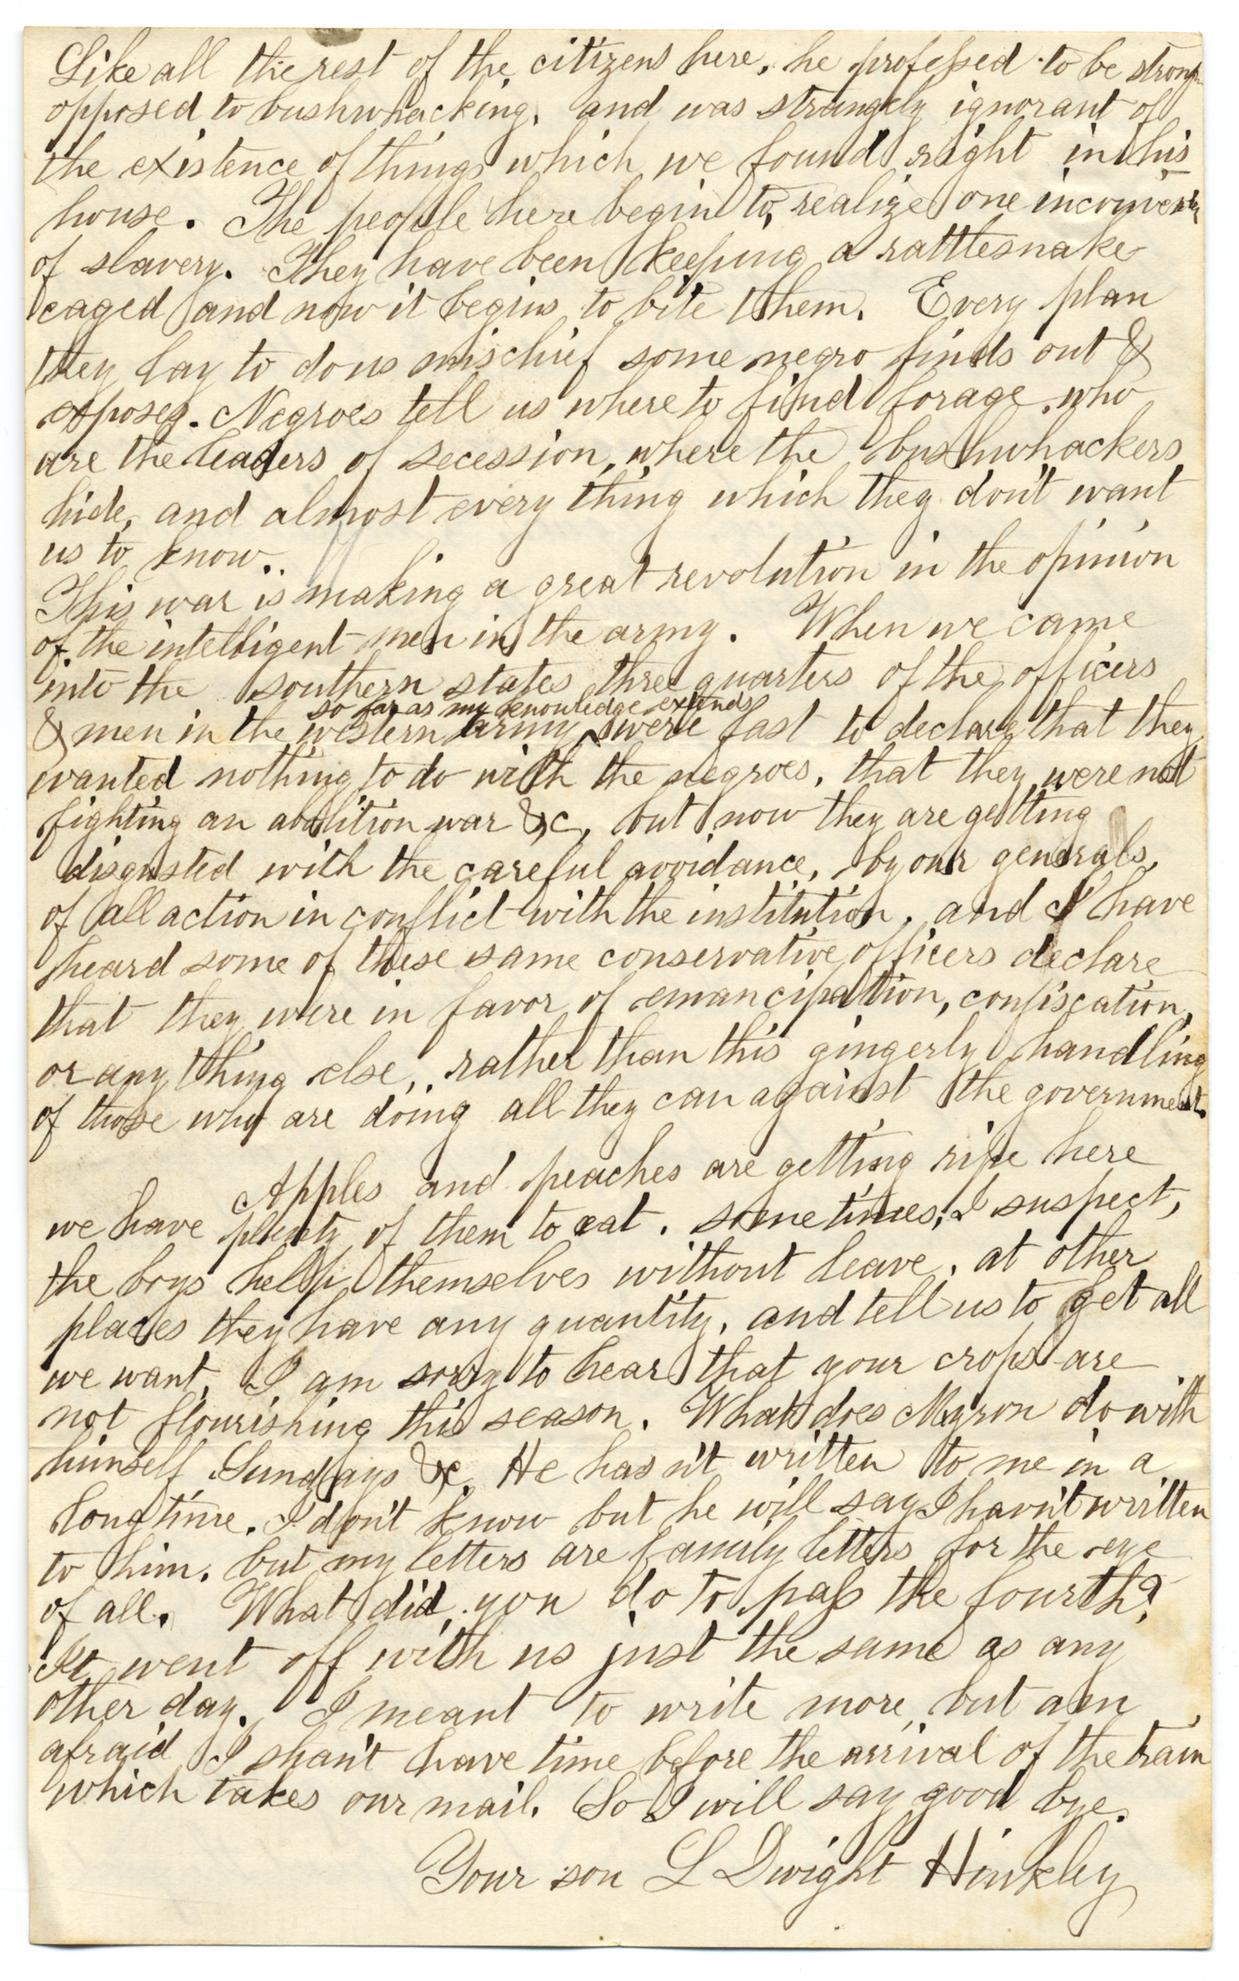 Like all the rest of the citizens here, he professed to be strong
opposed to bushwhacking, and was strangely ignorant of
the existence of things which we found right in his
house. The people here begin to realize one
of slavery. They have been keeping a rattlesnake
caged and now it begins to bite them. Every plan
they lay to do us mischief some negro finds out &
exposes. Negroes tell us where to find forage, who
are the leaders of secession, where the bushwhackers
hide, and almost every thing which they don't want
us to know.
This war is making a great revolution in the opinion
of the intelligent men in the army. When we came
into the southern states three quarters of the officers
so far as my knowledge extends
& men in the western army were fast to declare that they
wanted nothing to do with the negroes, that they were not
fighting an abolition war &c, but now they are getting
disgusted with the careful avoidance, by our generals,
of all action in conflict with the institution, and I have
heard some of these same conservative officers declare
that they were in favor of emancipation, confiscation,
or any thing else, rather than this gingerly handling
of those who are doing all they can against the government.
Apples and peaches are getting ripe here
we have plenty of them to eat. sometimes, I suspect,
the boys help themselves without leave, at other
places they have any quantity, and tell us to get all
we want. I am sorry to hear that your crops are
not flourishing this season. What does Myron do with
himself Sundays &c. He hasn't written to me in a
long time. I don't know but he will say I havn't written
to him, but my letters are family letters for the eye
of all. What did you do to pass the fourth?
It went off with us just the same as any
other day. I meant to write more, but am
afraid I shan't have time before the arrival of the train
which takes our mail. So I will say good bye.
Your son L Dwight Hinkley